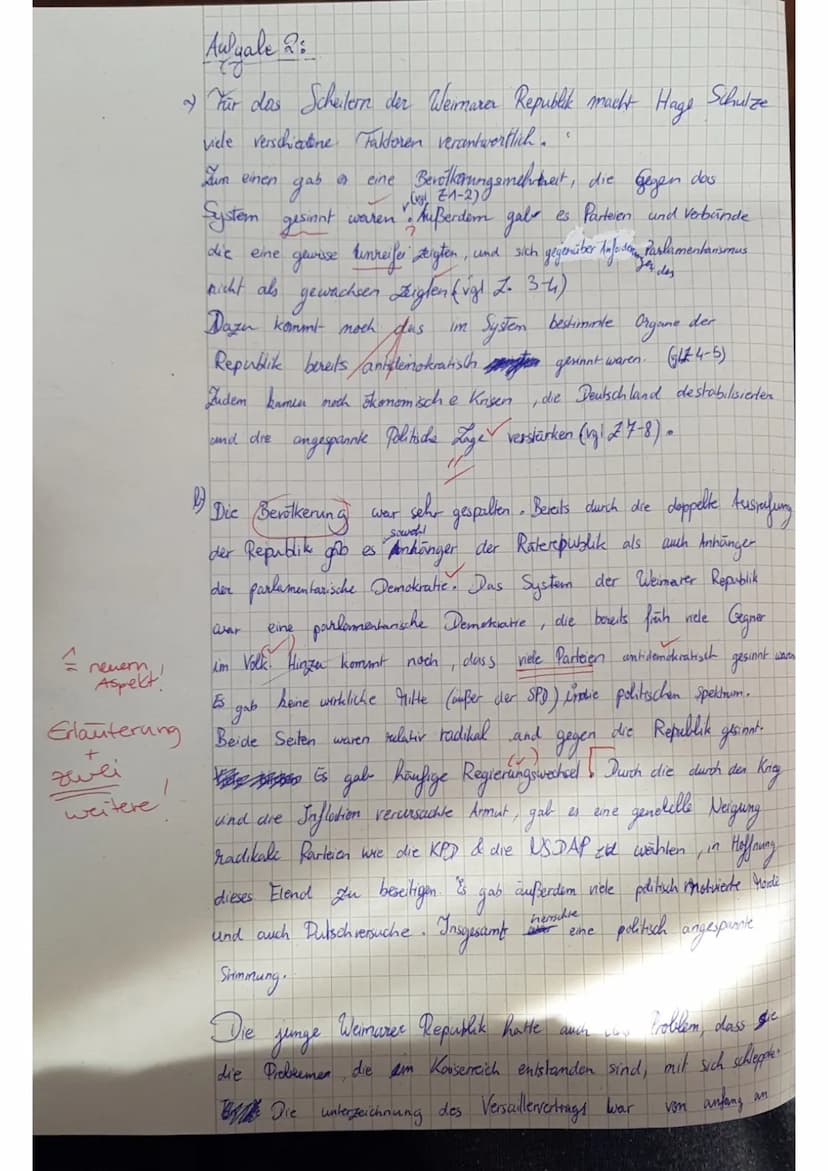 Aufgabe 2:
a) Für das Scheitern der Weimarer Republik macht Hage Schulze
viele verschiedene Faktoren verantwortlich.
Zum einen gab es eine Bevölkerungsmehrheit, die gegen das
(vgl. Z 1-2)
System gesinnt waren. Außerdem gab es Parteien und Verbände
die eine gewisse Unreife zeigten, und sich gegenüber Parlamentarismus
des
nicht als gewachsen zeigten (vgl Z. 3-4)
Dazu kommt noch das im System bestimmte Organe der
Republik bereits antidemokratisch gesinnt waren. (vgl Z 4-5)
Zudem kamen noch ökonomische Krisen, die Deutschland destabilisierten
und die angespannte Politische Lage verstärken (vgl Z 7-8).
b) Die Bevölkerung war sehr gespalten. Bereits durch die doppelte Ausrufung
sowohl
der Republik gab es Anhänger der Räterepublik als auch Anhänger
der parlamentarische Demokratie. Das System der Weimarer Republik
war eine parlamentarische Demokratie, die bereits früh viele Gegner
im Volk. Hinzu kommt noch, dass viele Parteien antidemokratisch gesinnt waren
≙ neuem Aspekt!
Es gab keine wirkliche Mitte (außer der SPD) politischen Spektrum.
Erläuterung + zwei weitere!
Beide Seiten waren relativ radikal und gegen die Republik gesinnt.
Es gab häufige Regierungswechsel. Durch die durch den Krieg
und die Inflation verursachte Armut, gab es eine generelle Neigung
radikale Parteien wie die KPD & die NSDAP zu wählen, in Hoffnung
dieses Elend zu beseitigen. Es gab außerdem viele politisch motivierte Morde
herrschte
und auch Putschversuche. Insgesamt eine politisch angespannte
Stimmung.
Die junge Weimarer Republik hatte auch Problem, dass sie
die Problemen, die im Kaiserreich entstanden sind, mit sich schleppte.
Die unterzeichnung des Versaillervertrags war von anfang an